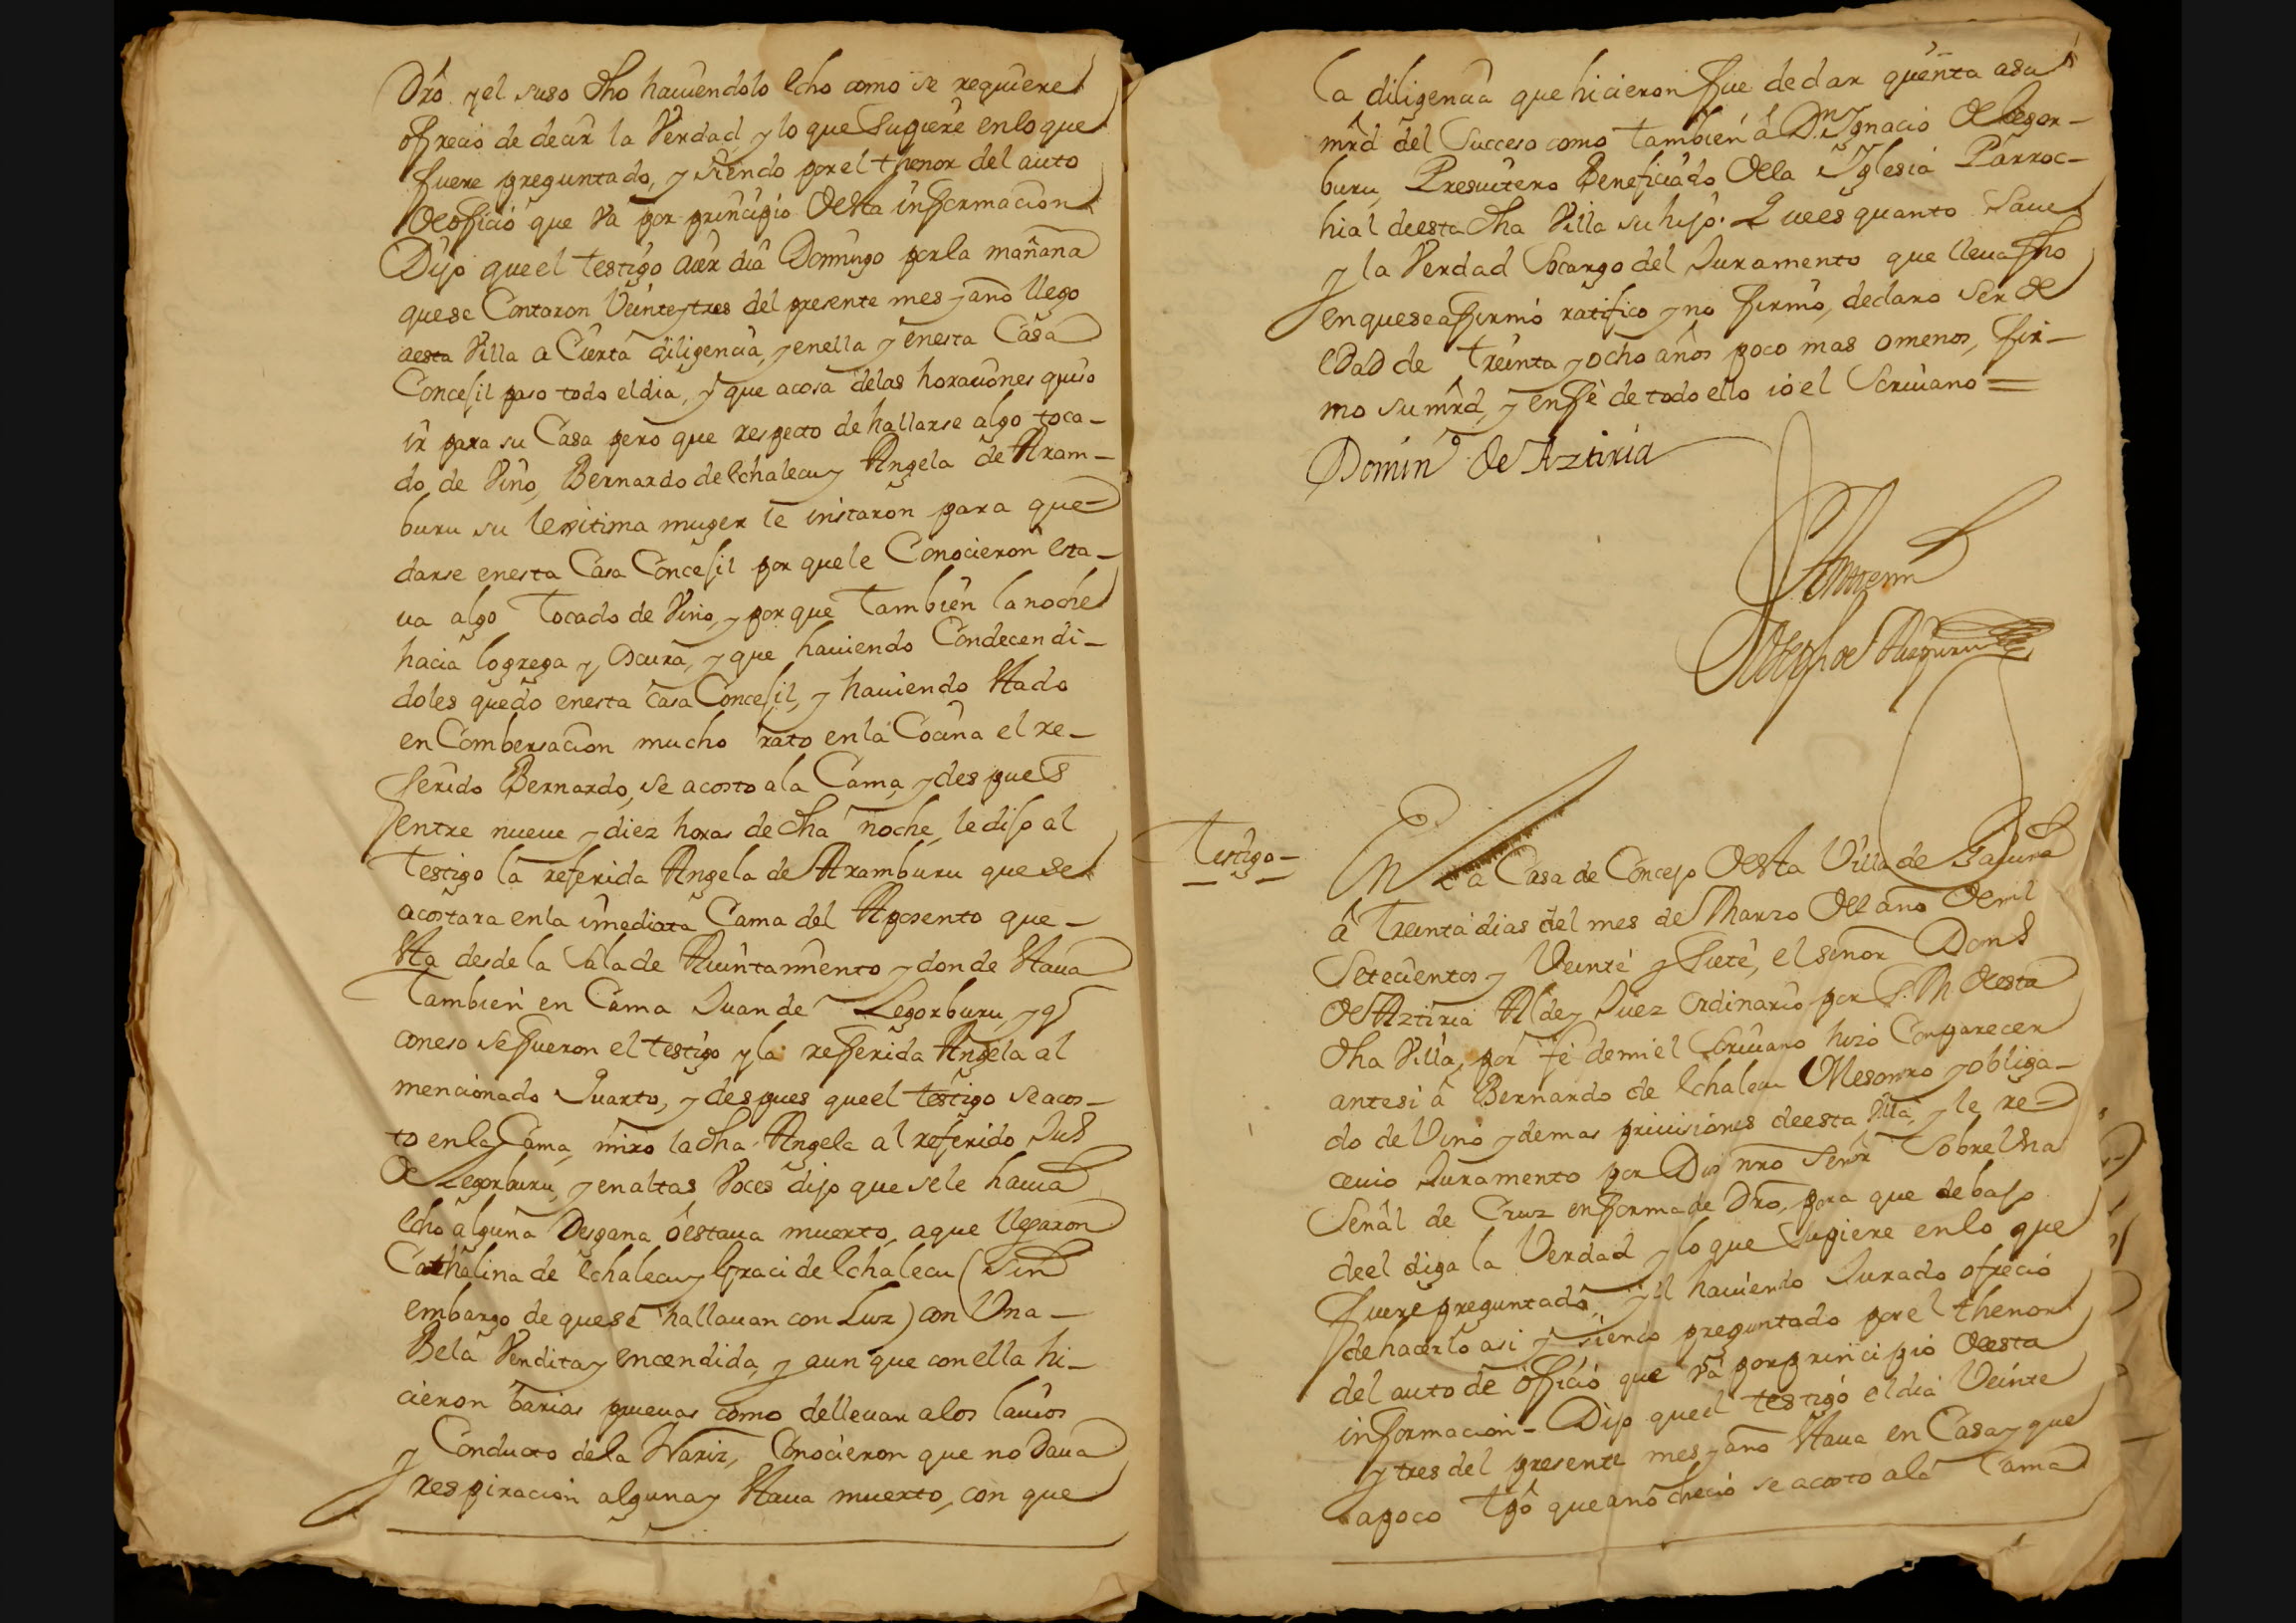 Dro. y el suso dho haviendolo echo como se requiere
ofrecio de decir la Verdad, y lo que supiere en lo que
fuere preguntado, y siendo por el thenor del auto
de oficio que va por principio desta informacion
Dijo que el testigo aier dia Domingo por la mañana
que se Contaron Veinte y tres del presente mes y año llego
aesta Villa a Cierta diligencia, y enella y enesta Casa
Concejil paso todo el dia, y que acosa delas horaciones quiso
ir para su Casa pero que respecto de hallarse algo toca-
do de Vino, Bernardo de echalecu y Angela de Aram-
buru su lexitima muger le instaron para que
darse enesta Casa Concejil por quele Conocieron esta-
va algo Tocado de Vino, y por que Tambien la noche
hacia logrega y oscura, y que haviendo Condecendi-
doles quedo enesta casa Concejil, y haviendo stado
en Combersacion mucho rato en la Cocina el re-
ferido Bernardo, se acosto ala Cama, y despues
entre nueve y diez horas de dha noche, le dijo al
Testigo la referida Angela de Aramburu que se
acostara enla imediata Cama del Aposento que-
sta desde la Sala de Aiuntamiento y donde stava
Tambien en Cama Juan de Legorburu, y q
coneso se fueron el testigo y la referida Angela al
mencionado Quarto, y despues que el testigo se acos-
to en la Cama, miro la dha Angela al referido Jus
de Legorburu, y en altas Voces dijo que sele havia
echo alguna Desgana o estava muerto, aque llegaron
Cathalina de echalecu y Graci de echalecu (sin
embargo de que se hallavan con Luz) con Una-
Bela Vendita y encendida, y aun que con ella hi-
cieron barias pruevas como de llevar alos lavios
y Conducto dela Nariz, Conocieron que no dava
respiracion alguna y stava muerto, con que
la diligencia que hicieron fue de dar quenta asu
mrd del Succeso como Tambien á Dn Ignacio de Legor-
buru, Presvitero Beneficiado de la Yglesia Parroc-
hial deesta dha Villa su hijo. Que es quanto save
y la Verdad Socargo del Juramento que lleva fho
en que se afirmó ratifico y no firmó, declaro ser de
edad de Treinta y ocho años poco mas o menos, fir-
mo su mrd, y enfè de todo ello io el Scrivano =
Domin.o de Aztiria
Antemi
Joseph de
Testigo- En la Casa de Concejo desta Villa de Gaviria
â Treinta dias del mes de Marzo del año de mil
Setecientos y Veinte y Siete, el señor Domº
de Aztiria Alde y Juez ordinario por S. M. desta
dha Villa, por fé demi el Scrivano hizo Comparecer
antesi â Bernardo de echalecu Mesonro y obliga-
do de Vino y demas provisiones deesta Villa, y le re-
civio Juramento por Dios nro Señor Sobre Una
Señal de Cruz enforma de Dro, para que debajo
deel diga la Verdad y lo que supiere enlo que
fuere preguntado, y él haviendo Jurado ofrecio
de hacerlo asi y siendo preguntado por el thenor
del auto de oficio que va por principio desta
informacion - Dijo que el testigo el dia Veinte
y tres del presente mes y año stava en Casa y que
apoco tpo que anochecio se acosto ala Cama